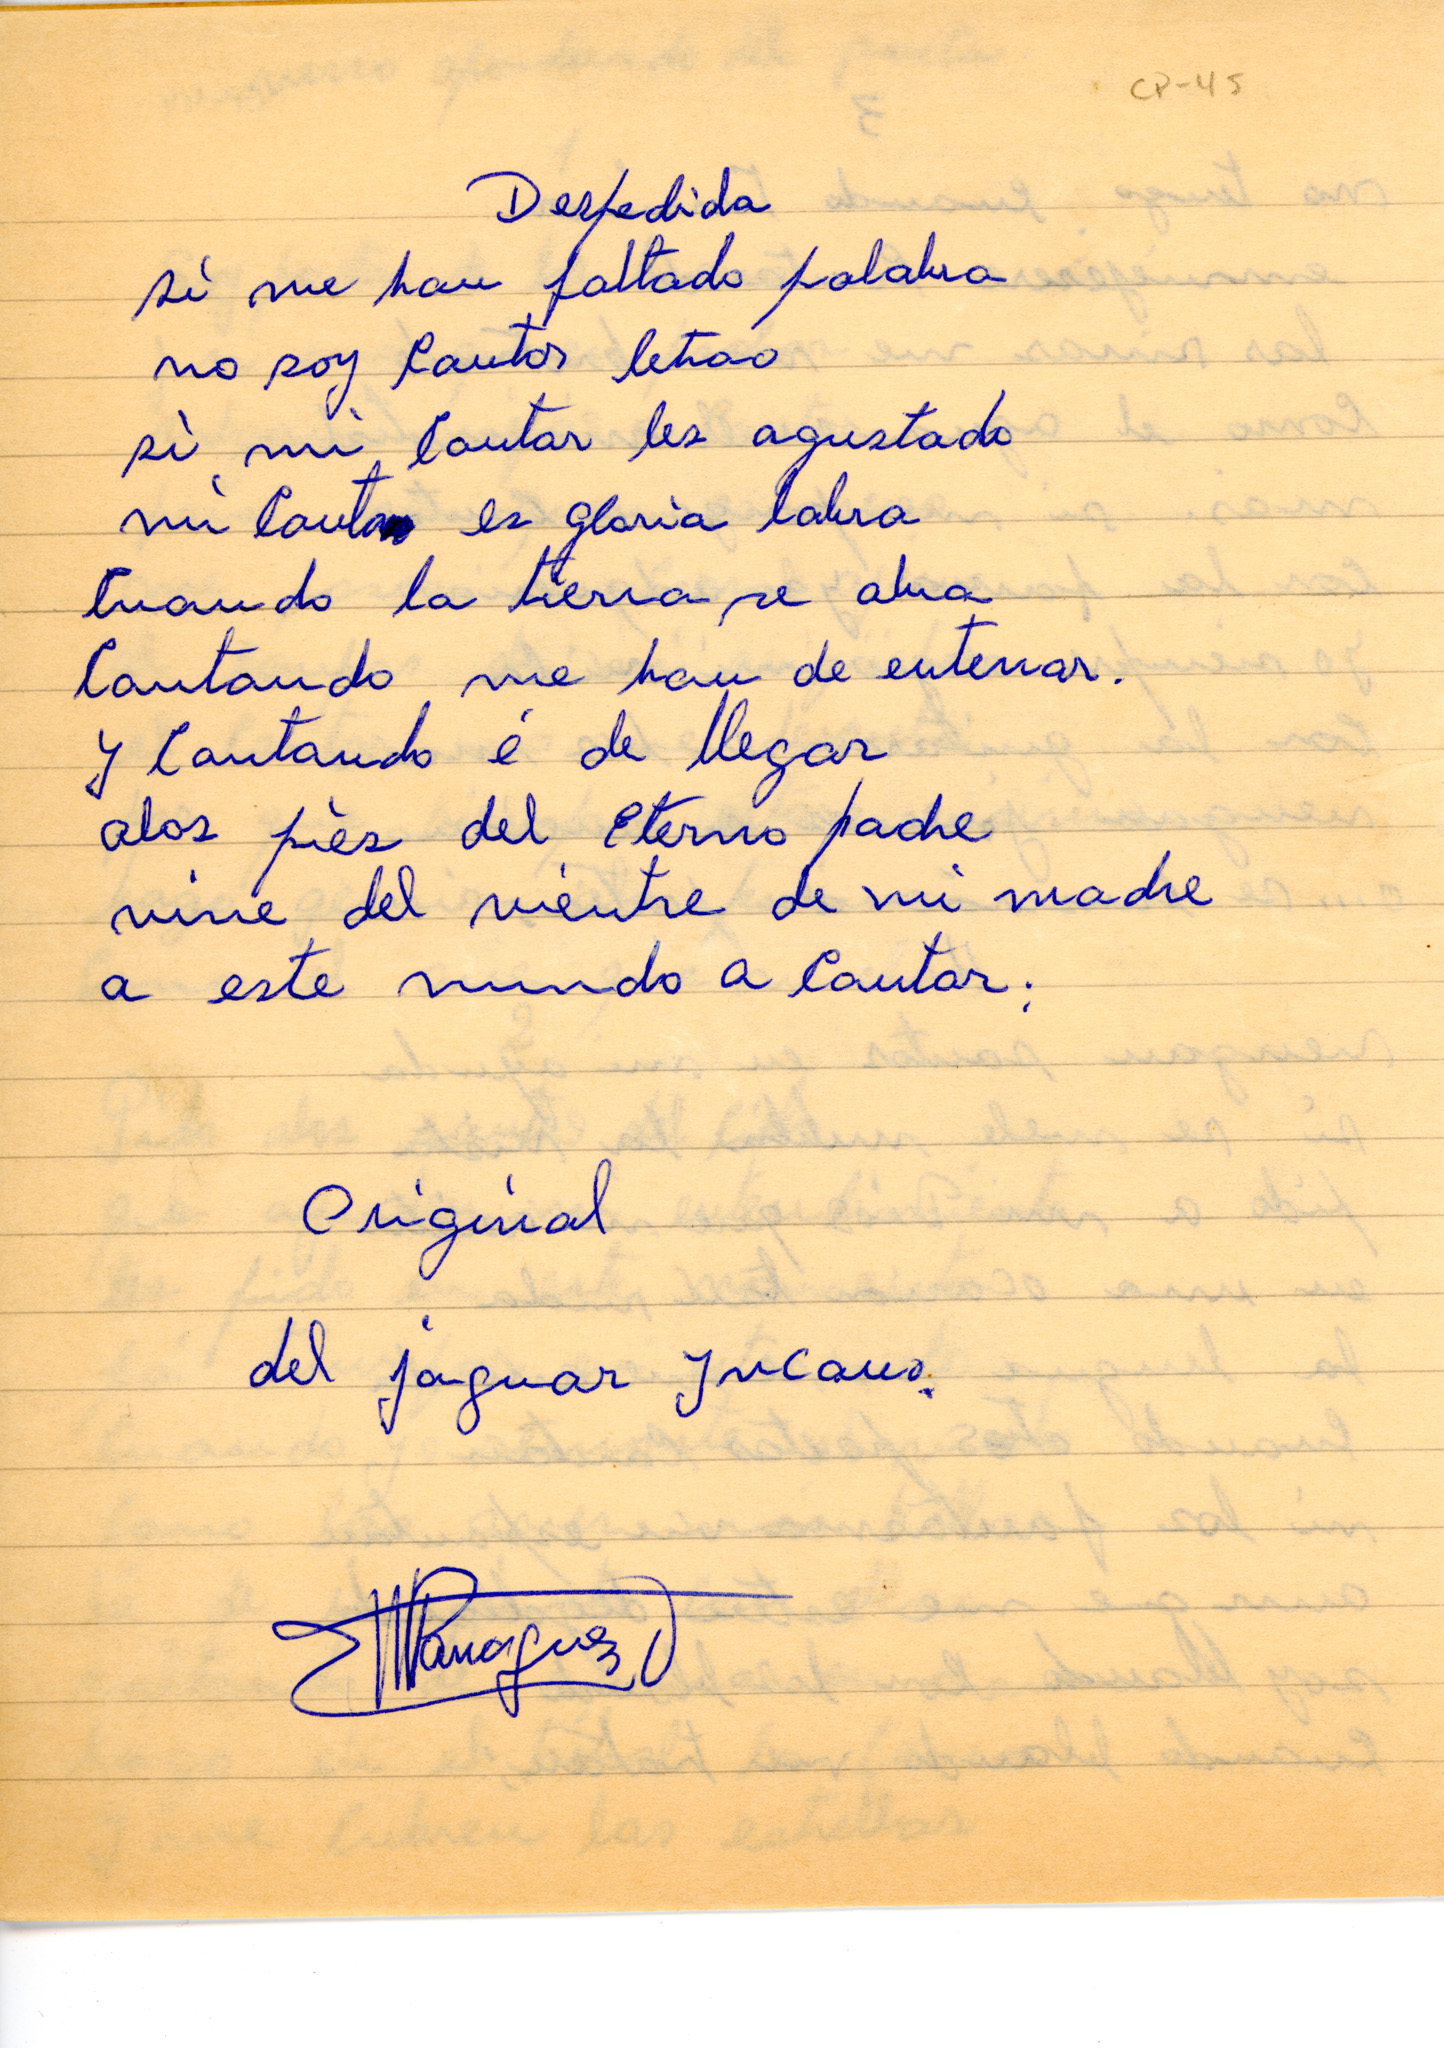 CP-45
Despedida
si me han faltado palabra
no soy Cantor letrao
si mi Cantar les agustado
mi Cantar es gloria labra
Cuando la tierra se abra
Cantando me han de enterrar.
y Cantando é de llegar
alos pies del Eterno padre
vine del vientre de mi madre
a este mundo a Cantar.
Original
del jaguar yucano.